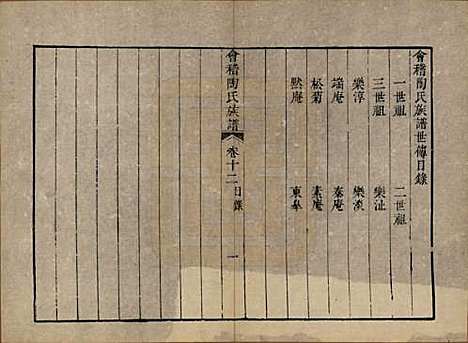 會稽陶氏族譜世傳目錄
一世祖　二世祖
三世祖　樂沚
樂淳　樂淡
端庵　秦庵
松菊　素庵
默庵　東皋
會稽陶氏族譜　卷十二目錄　一